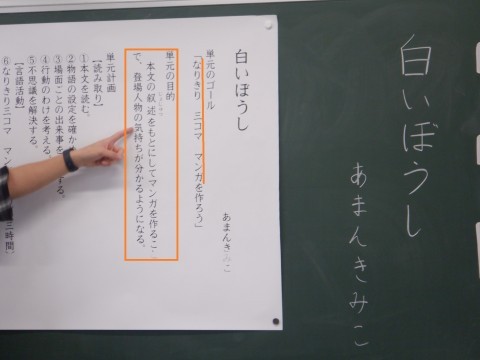 白いぼうし
あまんきみこ
白いぼうし
あまんきみこ
単元のゴール
「なりきり 三コマ マンガを作ろう」
単元の目的
本文の叙述をもとにしてマンガを作るこ
で、登場人物の気持ちが分かるようになる。
単元計画
【読み取り】
①本文を読む。
②物語の設定を確か
③場面ごとの出来事を
する。
④行動のわけを考える
⑤不思議を解決する。
【言語活動】
⑥なりきり三コマ マン
三時間)